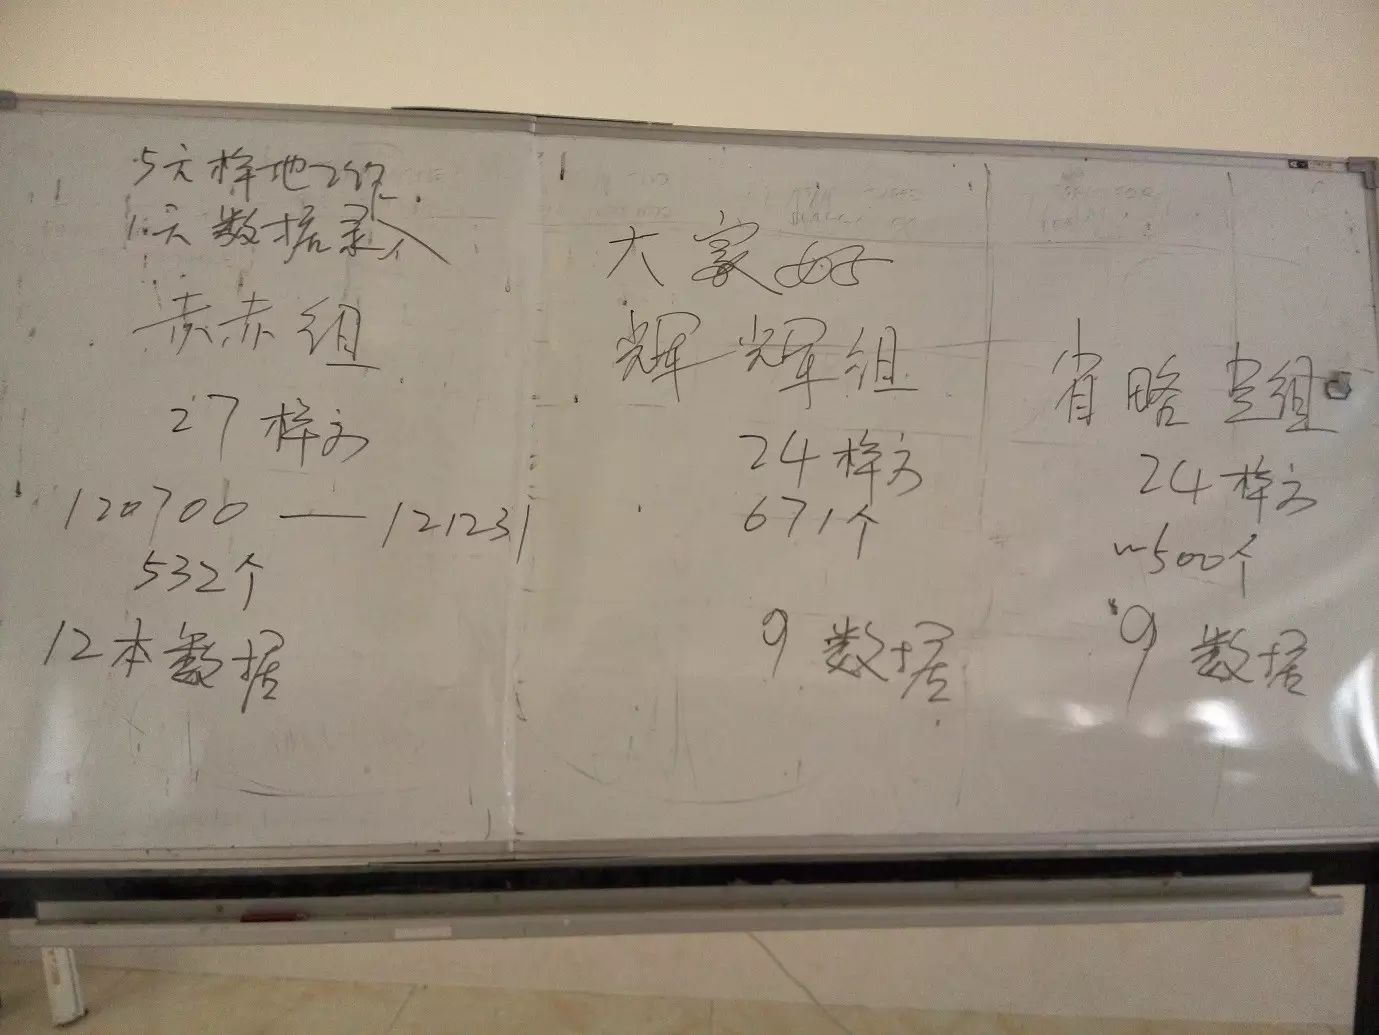 5天样地工作
1天数据录入
赤赤组
27样方
120706 — 121231
532个
12本数据
大家好
辉辉组
24样方
671个
9数据
省略号组
24样方
~500个
9数据